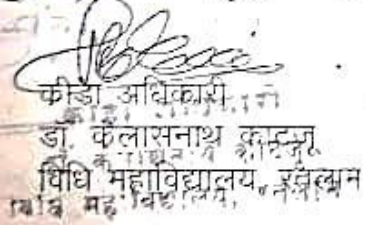 कीडा अधिकारी
डॉ. कैलासनाथ काटजू
विधि महाविद्यालय, रतलाम